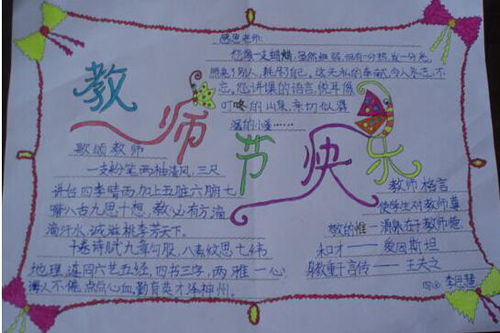 教师节快乐
感恩老师:
您像一支蜡烛,虽然细弱,但有一分热,发一分光,
照亮了别人,耗尽了自己。这无私的奉献,令人永志不
忘。您讲课的语言,悦耳像
叮咚的山泉,亲切似潺
潺的小溪……
歌颂教师
一支粉笔两袖清风,三尺
讲台四季晴雨,加上五脏六腑七
嘴八舌九思十想,教必有方,滴
滴汗水,诚滋桃李芳天下。
十卷诗赋九章勾股,八索文思七纬
地理,连同六艺五经,四书三字,两雅一心
诲人不倦,点点心血,勤育英才泽神州。
教师格言
使学生对教师尊
敬的惟一源泉在于教师德
和才——爱因斯坦
身教重于言传——王夫之